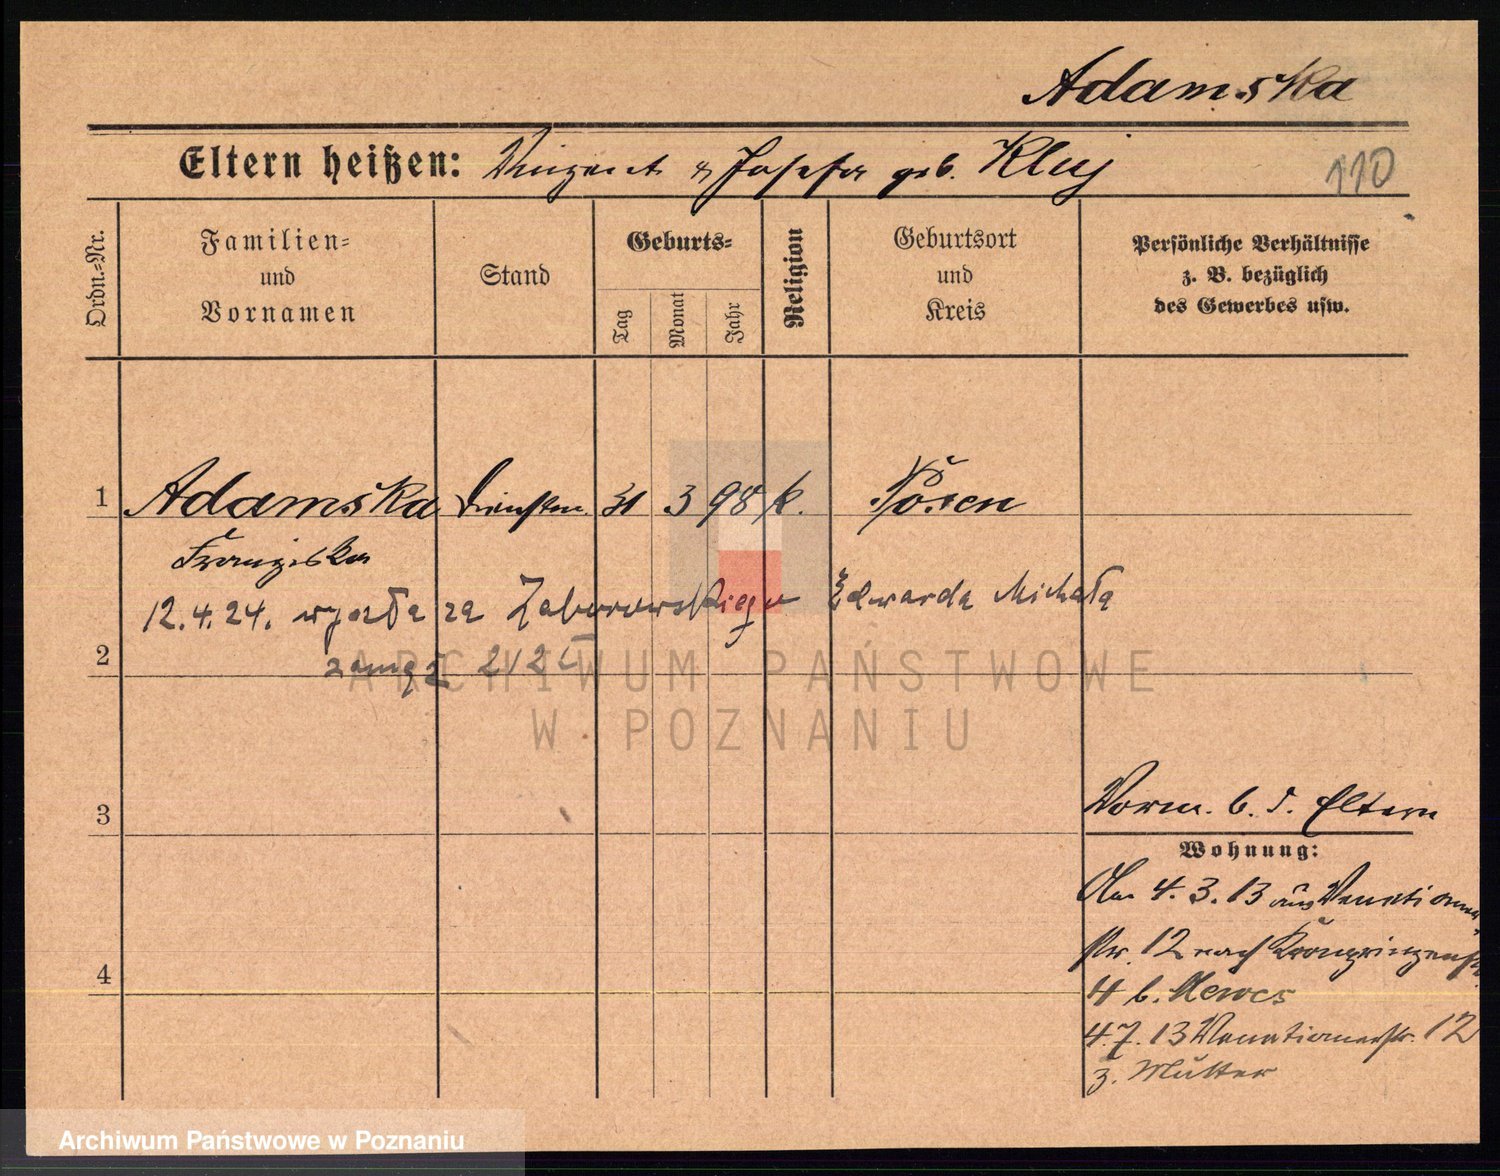 Adamska
Eltern heißen: Vinzent & Josefa geb. Kluj
110
Ordn.-Nr.
Familien-
und
Vornamen
Stand
Geburts-
Tag
Monat
Jahr
Religion
Geburtsort
und
Kreis
Persönliche Verhältnisse
z. B. bezüglich
des Gewerbes usw.
1 Adamska Dienstm. 31 3 98 k. Posen
Franziska
12.4.24. wyszła za Zaborowskiego Edwarda Michała
2 zamąż
ARCHIWUM PAŃSTWOWE
W POZNANIU
3
Vorm. b. d. Eltern
Wohnung:
4.3.13 aus Venetianer
str. 12 nach Kronprinzenstr.
4
4 b. Mewes
4.7.13 Venetianerstr. 12
z. Mutter
Archiwum Państwowe w Poznaniu